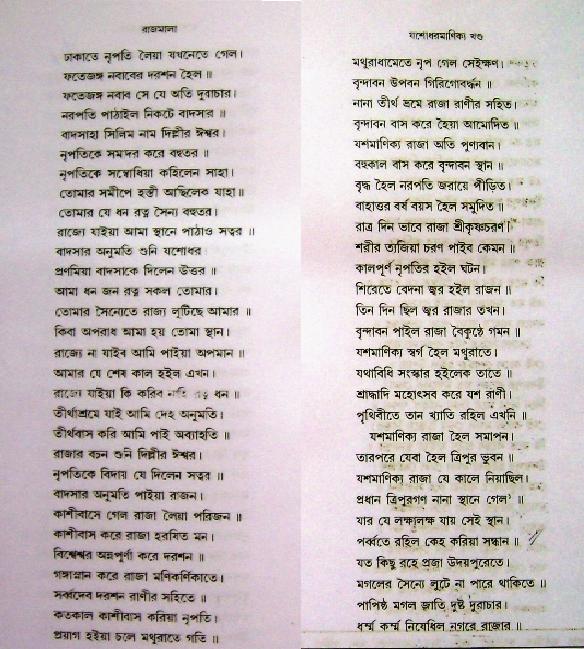 রাজমালা
ঢাকাতে নৃপতি লৈয়া যখনেতে গেল।
ফতেজঙ্গ নবাবের দরশন হৈল ॥
ফতেজঙ্গ নবাব সে যে অতি দুরাচার।
নরপতি পাঠাইল নিকটে বাদসার ॥
বাদসাহা সিলিম নাম দিল্লীর ঈশ্বর।
নৃপতিকে সমাদর করে বহুতর ॥
নৃপতিকে সম্বোধিয়া কহিলেন সাহা।
তোমার সমীপে হস্তী আছিলেক যাহা॥
তোমার যে ধন রত্ন সৈন্য বহুতর।
রাজ্যে যাইয়া আমা স্থানে পাঠাও সত্বর ॥
বাদসার অনুমতি শুনি যশোধর।
প্রণমিয়া বাদসাকে দিলেন উত্তর ॥
আমা ধন জন রত্ন সকল তোমার।
তোমার সৈন্যেতে রাজ্য লূটিছে আমার ॥
কিবা অপরাধ আমা হয় তোমা স্থান।
রাজ্যে না যাইব আমি পাইয়া অপমান ॥
আমার যে শেষ কাল হইল এখন।
রাজ্যে যাইয়া কি করিব নাহি রত্ন ধন ॥
তীর্থাশ্রমে যাই আমি দেহ অনুমতি।
তীর্থবাস করি আমি পাই অব্যাহতি ॥
রাজার বচন শুনি দিল্লীর ঈশ্বর।
নৃপতিকে বিদায় যে দিলেন সত্বর ॥
বাদসার অনুমতি পাইয়া রাজন।
কাশীবাসে গেল রাজা লৈয়া পরিজন ॥
কাশীবাস করে রাজা হরষিত মন।
বিশ্বেশ্বর অন্নপূর্ণা করে দরশন ॥
গঙ্গাস্নান করে রাজা মণিকর্ণিকাতে।
সর্ব্বদেব দরশন রাণীর সহিতে ॥
কতকাল কাশীবাস করিয়া নৃপতি।
প্রয়াগ হইয়া চলে মথুরাতে গতি ॥
যাশোধরমাণিক্য খণ্ড
মথুরাধামেতে নৃপ গেল সেইক্ষণ।
বৃন্দাবন উপবন গিরিগোবর্দ্ধন ॥
নানা তীর্থ ভ্রমে রাজা রাণীর সহিত।
বৃন্দাবন বাস করে হৈয়া আমোদিত ॥
যশমাণিক্য রাজা অতি পুণ্যবান।
বহুকাল বাস করে বৃন্দাবন স্থান ॥
বৃদ্ধ হৈল নরপতি জরায়ে পীড়িত।
বাহাত্তর বর্ষ বয়স হৈল সমুদিত ॥
রাত্র দিন ভাবে রাজা শ্রীকৃষ্ণচরণ।
শরীর ত্যজিয়া চরণ পাইব কেমন ॥
কালপূর্ণ নৃপতির হইল ঘটন।
শিরেতে বেদনা জ্বর হইল রাজন ॥
তিন দিন ছিল জ্বর রাজার তখন।
বৃন্দাবন পাইল রাজা বৈকুণ্ঠে গমন ॥
যশমাণিক্য স্বর্গ হৈল মথুরাতে।
যথাবিধি সংস্কার হইলেক তাতে ॥
শ্রাদ্ধাদি মহোৎসব করে যশ রাণী।
পৃথিবীতে তান খ্যাতি রহিল এখনি ॥
যশমাণিক্য রাজা হৈল সমাপন।
তারপরে যেবা হৈল ত্রিপুর ভুবন ॥
যশমাণিক্য রাজা যে কালে নিয়াছিল।
প্রধান ত্রিপুরগণ নানা স্থানে গেল ॥
যার যে লক্ষ্যলক্ষ যায় সেই স্থান।
পর্ব্বতে রহিল কেহ করিয়া সন্ধান ॥
যত কিছু রহে প্রজা উদয়পুরেতে।
মগলের সৈন্যে লুটে না পারে থাকিতে ॥
পাপিষ্ঠ মগল জাতি দুষ্ট দুরাচার।
ধর্ম্ম কর্ম্ম নিষেধিল নগরে রাজার ॥